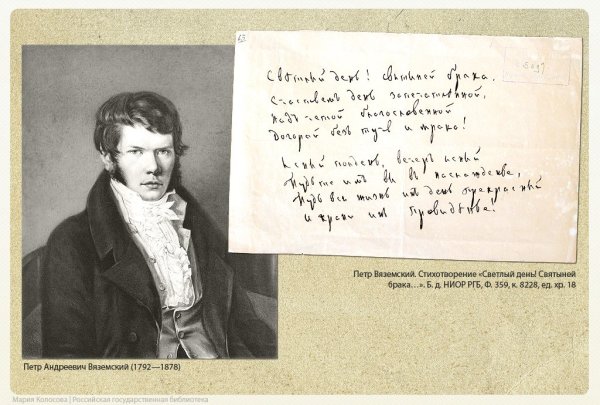 63
Свѣтлый день! Святыней брака,
Счастьемъ день запечатлѣнной,
Надъ четой благословенной
Догорай безъ тучъ и мрака!
Ясный полдень, вечеръ ясный
имъ въ наслажденье,
Будь вся жизнь имъ день прекрасный
И храни ихъ Провидѣнье!
Петр Вяземский. Стихотворение «Светлый день! Святыней
брака…». Б. д. НИОР РГБ, Ф. 359, к. 8228, ед. хр. 18
Петр Андреевич Вяземский (1792—1878)
Мария Колосова | Российская государственная библиотека